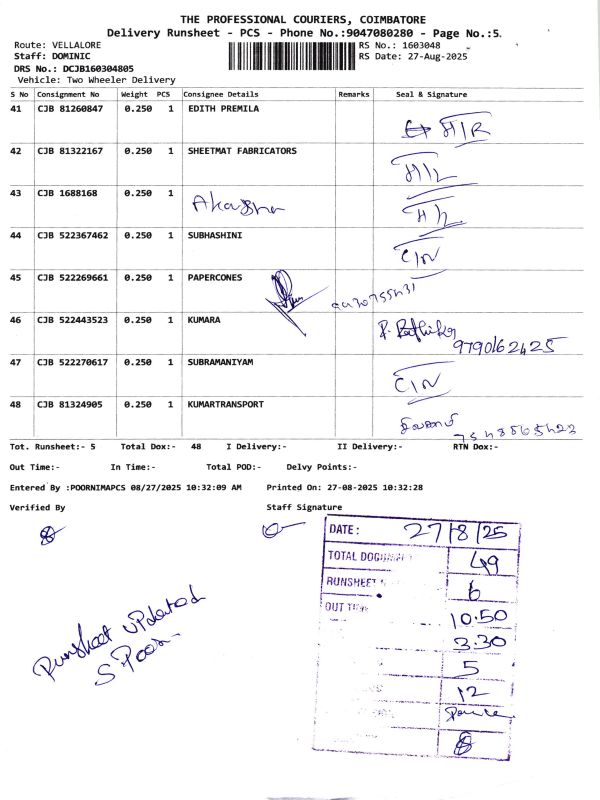 THE PROFESSIONAL COURIERS, COIMBATORE
Delivery Runsheet - PCS - Phone No.:9047080280 - Page No.:5.
Route: VELLALORE RS No.: 1603048
Staff: DOMINIC RS Date: 27-Aug-2025
DRS No.: DCJB160304805
Vehicle: Two Wheeler Delivery
S No Consignment No Weight PCS Consignee Details Remarks Seal & Signature
41 CJB 81260847 0.250 1 EDITH PREMILA
42 CJB 81322167 0.250 1 SHEETMAT FABRICATORS
43 CJB 1688168 0.250 1
44 CJB 522367462 0.250 1 SUBHASHINI
45 CJB 522269661 0.250 1 PAPERCONES
46 CJB 522443523 0.250 1 KUMARA
9790162425
47 CJB 522270617 0.250 1 SUBRAMANIYAM
48 CJB 81324905 0.250 1 KUMARTRANSPORT
Tot. Runsheet:- 5 Total Dox:- 48 I Delivery:- II Delivery:- RTN Dox:-
Out Time:- In Time:- Total POD:- Delvy Points:-
Entered By :POORNIMAPCS 08/27/2025 10:32:09 AM Printed On: 27-08-2025 10:32:28
Verified By Staff Signature
DATE : 27/8/25
TOTAL 49
RUNSHEET 6
OUT 10.50
3.30
5
12
Runsheet updated
S.Poor